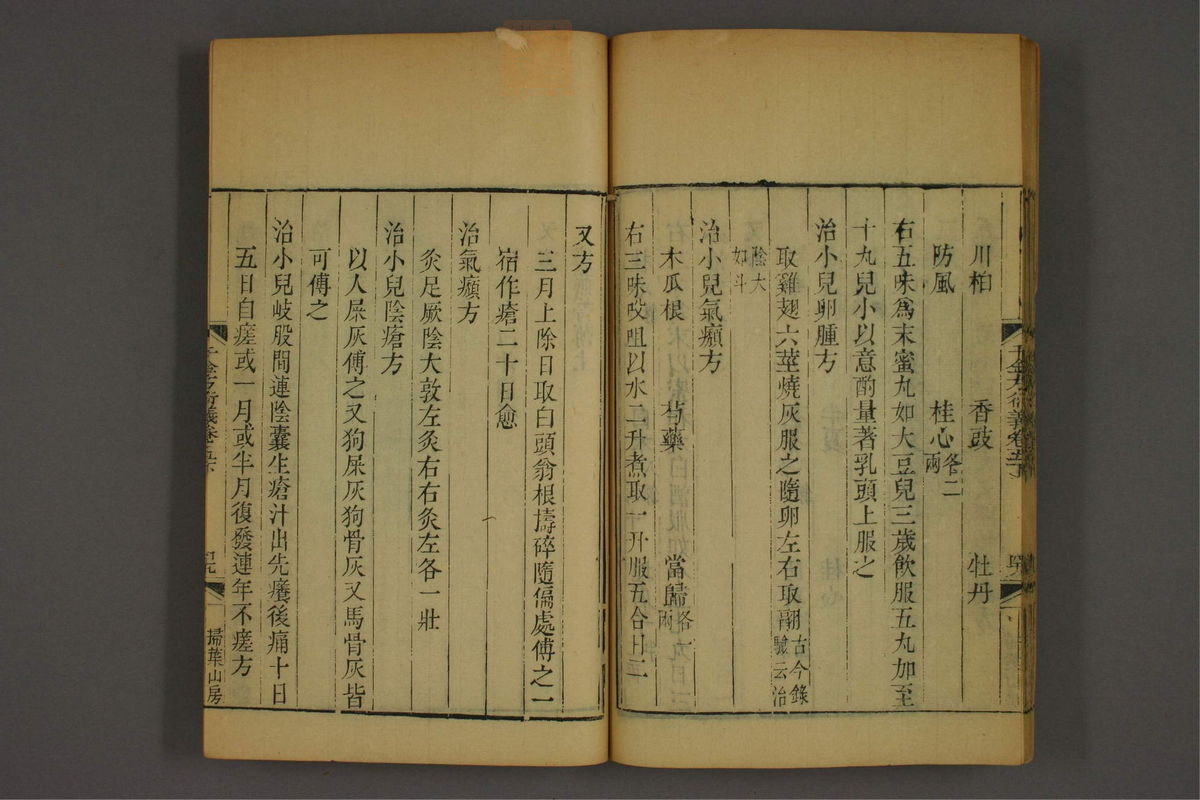 川柏　香豉　牡丹
防風　桂心各二兩
右五味為末蜜丸如大豆兒三歲飲服五丸加至
十丸兒小以意酌量著乳頭上服之
治小兒卵腫方
取雞翅六莖燒灰服之隨卵左右取翮古今錄驗云治
陰大如斗
治小兒氣㿗方
木瓜根　芎藥　當歸各一兩
右三味㕮咀以水二升煮取一升服五合日二
又方
三月上除日取白頭翁根擣碎隨偏處傅之一
宿作瘡二十日愈
治氣㿗方
灸足厥陰大敦左灸右右灸左各一壯
治小兒陰瘡方
以人屎灰傅之又狗屎灰狗骨灰又馬骨灰皆
可傅之
治小兒岐股間連陰囊生瘡汁出先癢後痛十日
五日自瘥或一月或半月復發連年不瘥方
千金方衍義卷五下
掃葉山房